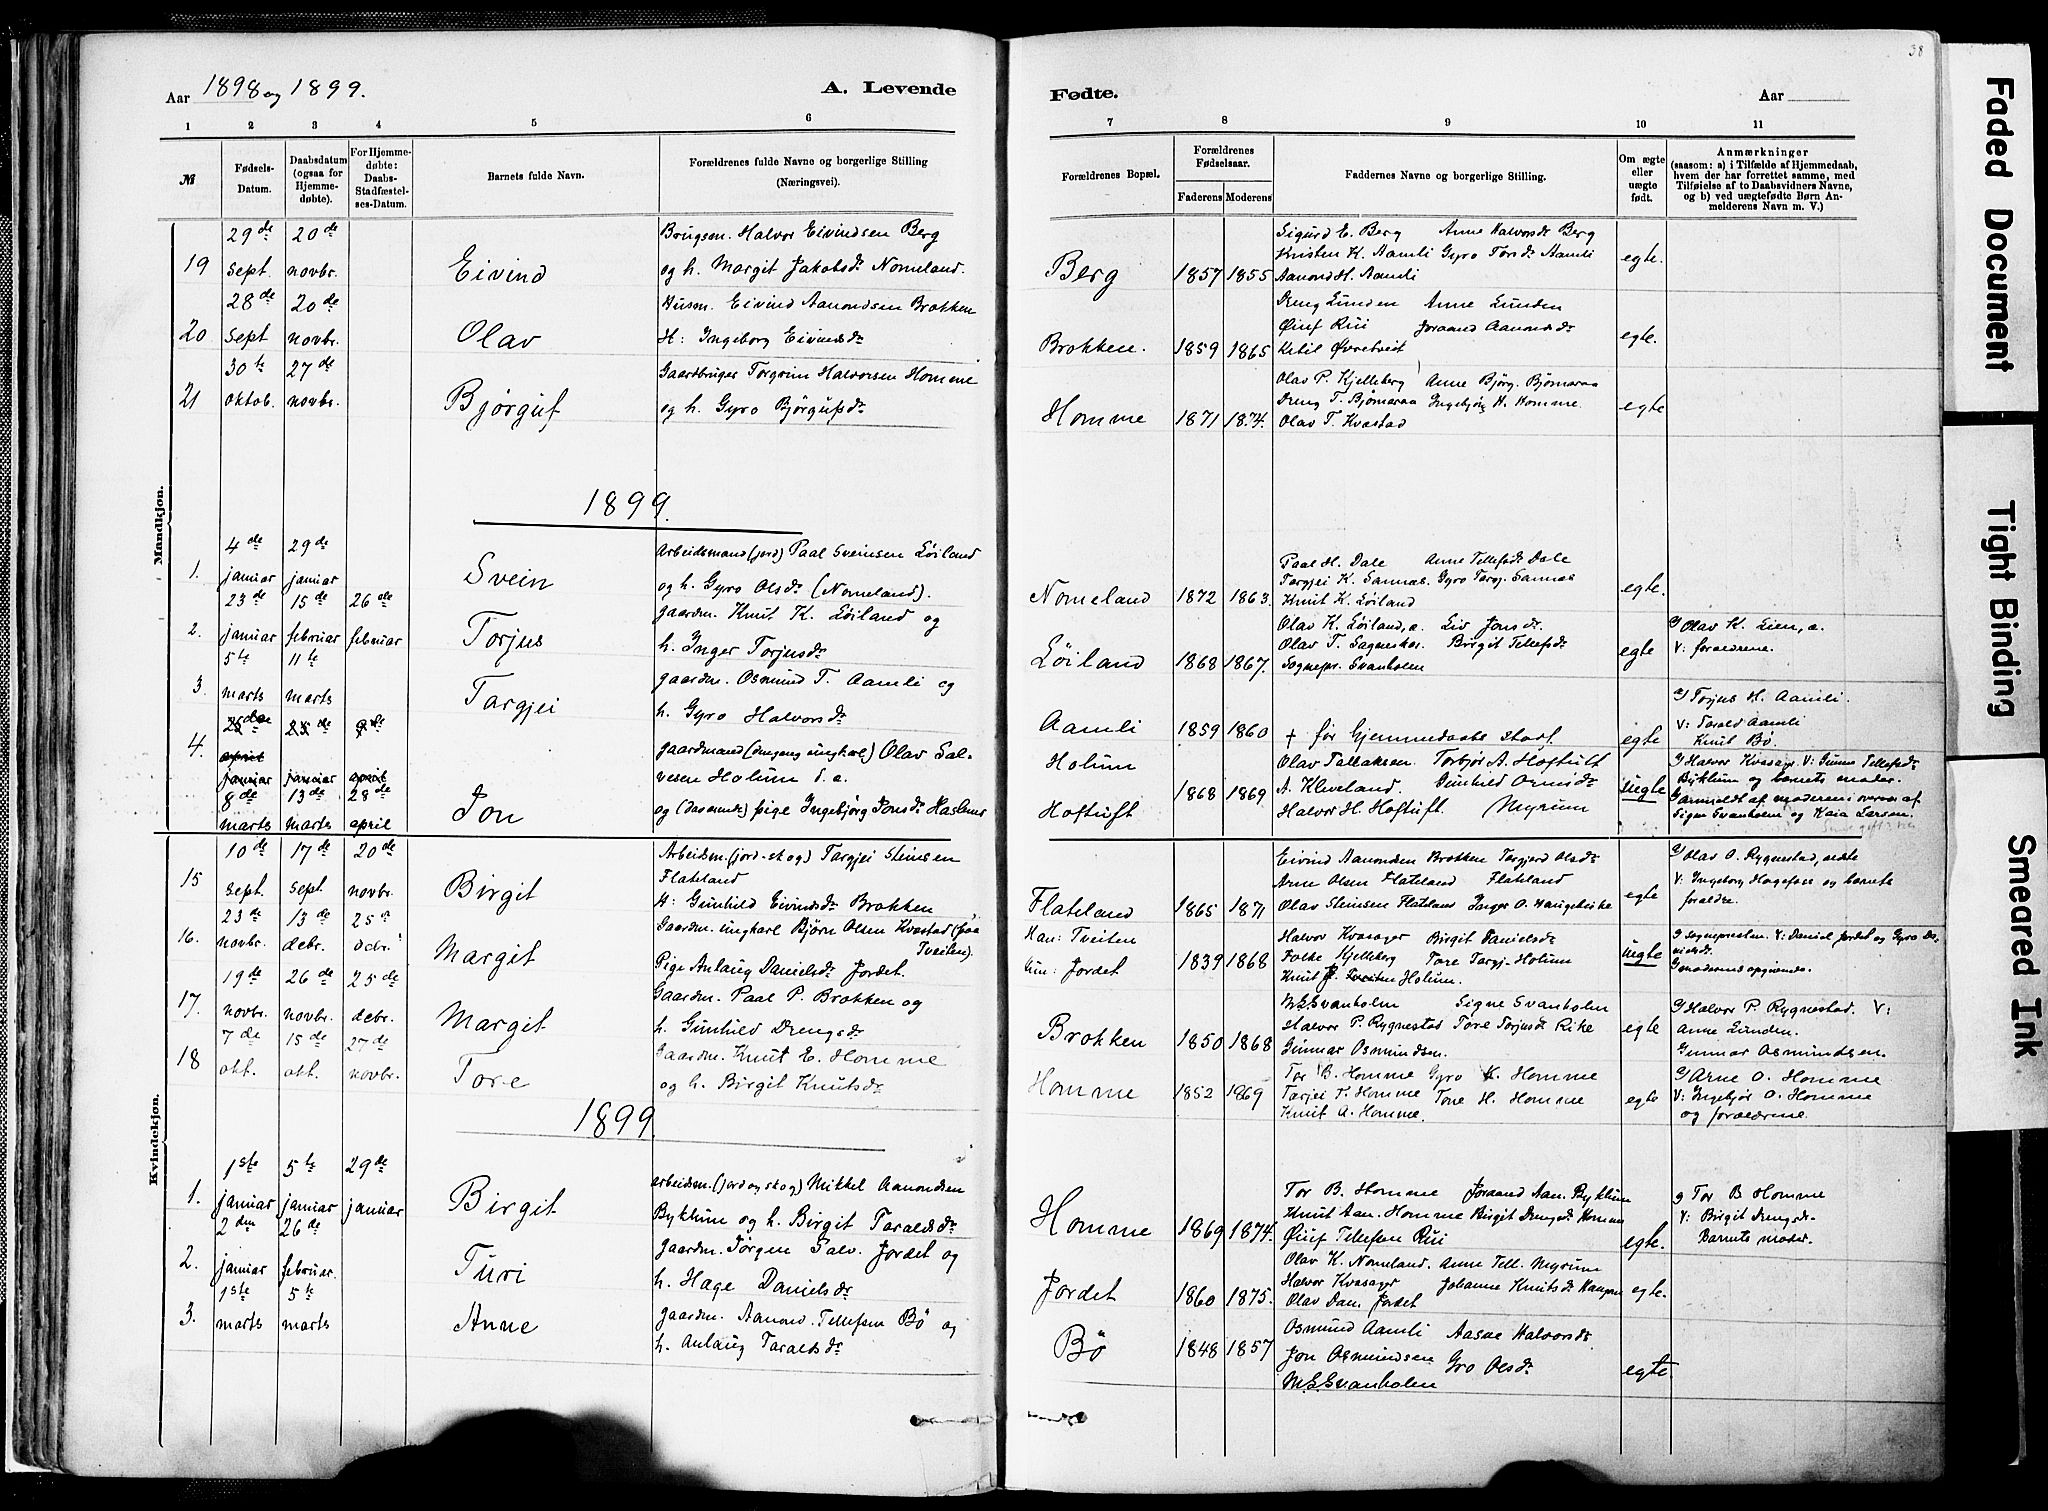 38
Aar 1898 og 1899.
A. Levende
Fødte.
Aar
1 2 3 4 5 6
7 8 9 10 11
№
Fødsels-Datum.
Daabsdatum (ogsaa for Hjemme-døbte).
For Hjemme-døbte: Daabs-Stadfæstel-ses-Datum.
Barnets fulde Navn.
Forældrenes fulde Navne og borgerlige Stilling (Næringsvei).
Forældrenes Bopæl.
Forældrenes Fødselsaar.
Faderens Moderens
Faddernes Navne og borgerlige Stilling.
Om ægte eller uægte født.
Anmærkninger
(saasom: a) i Tilfælde af Hjemmedaab, hvem der har forrettet samme, med Tilføielse af to Daabsvidners Navne, og b) ved uægtefødte Børn Anmelderens Navn m. V.)
Mandkjøn.
19 29de Sept. 20de novbr. Eivind
Brugsm. Halvor Eivindsen Berg
og h. Margit Jakobsdr Nomeland.
Berg 1857 1855
Sigurd E. Berg Anne Halvorsdr Berg
Kristen K. Aamli Gyro Torsdr Aamli
Aanond H. Aamli
egte.
20 28de Sept 20de novbr. Olav
Husm. Eivind Aanondsen Brokken
H: Ingeborg Eivindsdr
Brokken. 1859 1865
Dreng Lunden Anne Lunden
Øiuf Rui Joraand Aanondsdr
Ketil Øvretveit
egte.
21 30te oktob. 27de novbr. Bjørguf
Gaardbruger Torgrim Halvorsen Homme
og h. Gyro Bjørgufsdr
Homme 1871 1874.
Olav P. Kjelleberg Anne Bjørg. Bjømaraa
Dreng T. Bjømaraa Ingebjørg H. Homme.
Olav T. Kvastad
egte
1899.
1. 4de januar 29de januar Svein
Arbeidsmand (jord) Paal Sveinsen Løiland
og h. Gyro Olsdr (Nomeland).
Nomeland 1872 1863.
Paal H. Dale Anne Tellefsdr Dale
Targjei K. Sannes. Gyro Targj. Sannes
Knut K. Løiland
egte.
2. 23de januar 15de februar 26de februar Torjus
gaardm. Knut K. Løiland og
h. Inger Torjusdr
Løiland 1868 1867.
Olav K. Løiland, a. Liv Jonsdr.
Olav T. Sagneskar. Birgit Tellefsdr
Sognepr. Svanholm
egte
G Olav K. Lien, a.
V: foraeldrene.
3. 5te marts 11te marts Targjei
gaardm. Osmund T. Aamli og
h. Gyro Halvorsdr
Aamli 1859 1860
† før Hjemmedaabs stadf.
egte
G Torjus H. Aamli.
V: Tarald Aamli
Knut Bø.
4. 8de marts 13de marts 28de april Jon
gaardmand (ungkarl) Olav Sal-
vesen Holum d. e.
og pige Ingebjørg Jonsdr
Holum
Hoftuft
1868 1869
Olav Tallaksen. Torbjør A. Hoftuft
A. Kleveland. Gunhild
Halvor H. Hoftuft. Myrum
uegte
G Halvor Kvasager V: Gunne Tellefsdr
Byklum og barnets moder.
Signe Svanholm og Kaia Larsen.
Kvindekjøn.
15 10de Sept. 17de Sept 20de novbr. Birgit
Arbeidsm. (jord-skog) Targjei Steinsen
Flateland
H: Gunhild Eivindsdr Brokken
Flateland 1865 1871
Eivind Aanondsen Brokken Targjerd Olsdr
Arne Olsen Flateland Flateland
Olav Steinsen Flateland Inger O. Haugebirke
egte
G Olav O. Rygnestad,
V: Ingeborg og barnets
foraldre.
16. 23de novbr. 13de decbr. 25de Margit
Gaardm. ungkarl Bjørn Olsen Kvastad (paa
Tveiten)
Pige Anlaug Danielsdr Jordet.
Han: Tveiten
hun: Jordet
1839 1868
Halvor Kvasager Birgit Danielsdr
Folke Kjelleberg Tore Targj. Holum
Knut Holum.
uegte
G Sognepresten. V: Daniel Jordet og Gyro Da-
nielsdr.
moderens opgivende.
17. 19de novbr. 26de novbr. 25de decbr. Margit
Gaardm. Paal P. Brokken og
h. Gunhild Drengsdr
Brokken 1850 1868
M.S. Svanholm Signe Svanholm
Halvor P. Rygnestad Tore Torjusdr Rike
Gunnar Osmundsen.
egte
G Halvor P. Rygnestad. V:
Anne Lunden.
Gunnar Osmundsen.
18 7de okt. 15de okt. 27de novbr. Tore
Gaardm. Knut E. Homme
og h. Birgit Knutsdr
Homme 1852 1869
Tor B. Homme Gyro K. Homme
Targjei T. Homme Tone H. Homme
Knut A. Homme.
egte
G Arne O. Homme
V: Ingebjør O. Homme
og foraeldrene.
1899.
1. 1ste januar 5te januar 29de januar Birgit
arbeidsm. (jord og skog) Mikkel Aanondsen
Byklum og h. Birgit Taraldsdr
Homme 1869 1874.
Tor B. Homme Joraand Aan. Byklum
Knut Aan. Homme Birgit Drengsdr Homme
Øiuf Tellefsen Rui
egte.
G Tor B Homme
V: Birgit Drengsdr.
Barnets moder.
2. 2den januar 26de februar. Turi
gaardm. Jørgen Salv. Jordet og
h. Hage Danielsdr
Jordet 1860 1875.
Olav K. Nomeland. Anne Tell. Myrum
Halvor Kvasager Johanne Knutsdr
Olav Dan. Jordet
egte.
3. 1ste marts 5te marts Anne
gaardm. Aanond Tellefsen Bø og
h. Anlaug Taraldsdr
Bø 1848 1857
Osmund Aamli Aasne Halvorsdr
Jon Osmundsen Gro Olsdr
M.S. Svanholm
egte.
Faded Document
Tight Binding
Smeared Ink